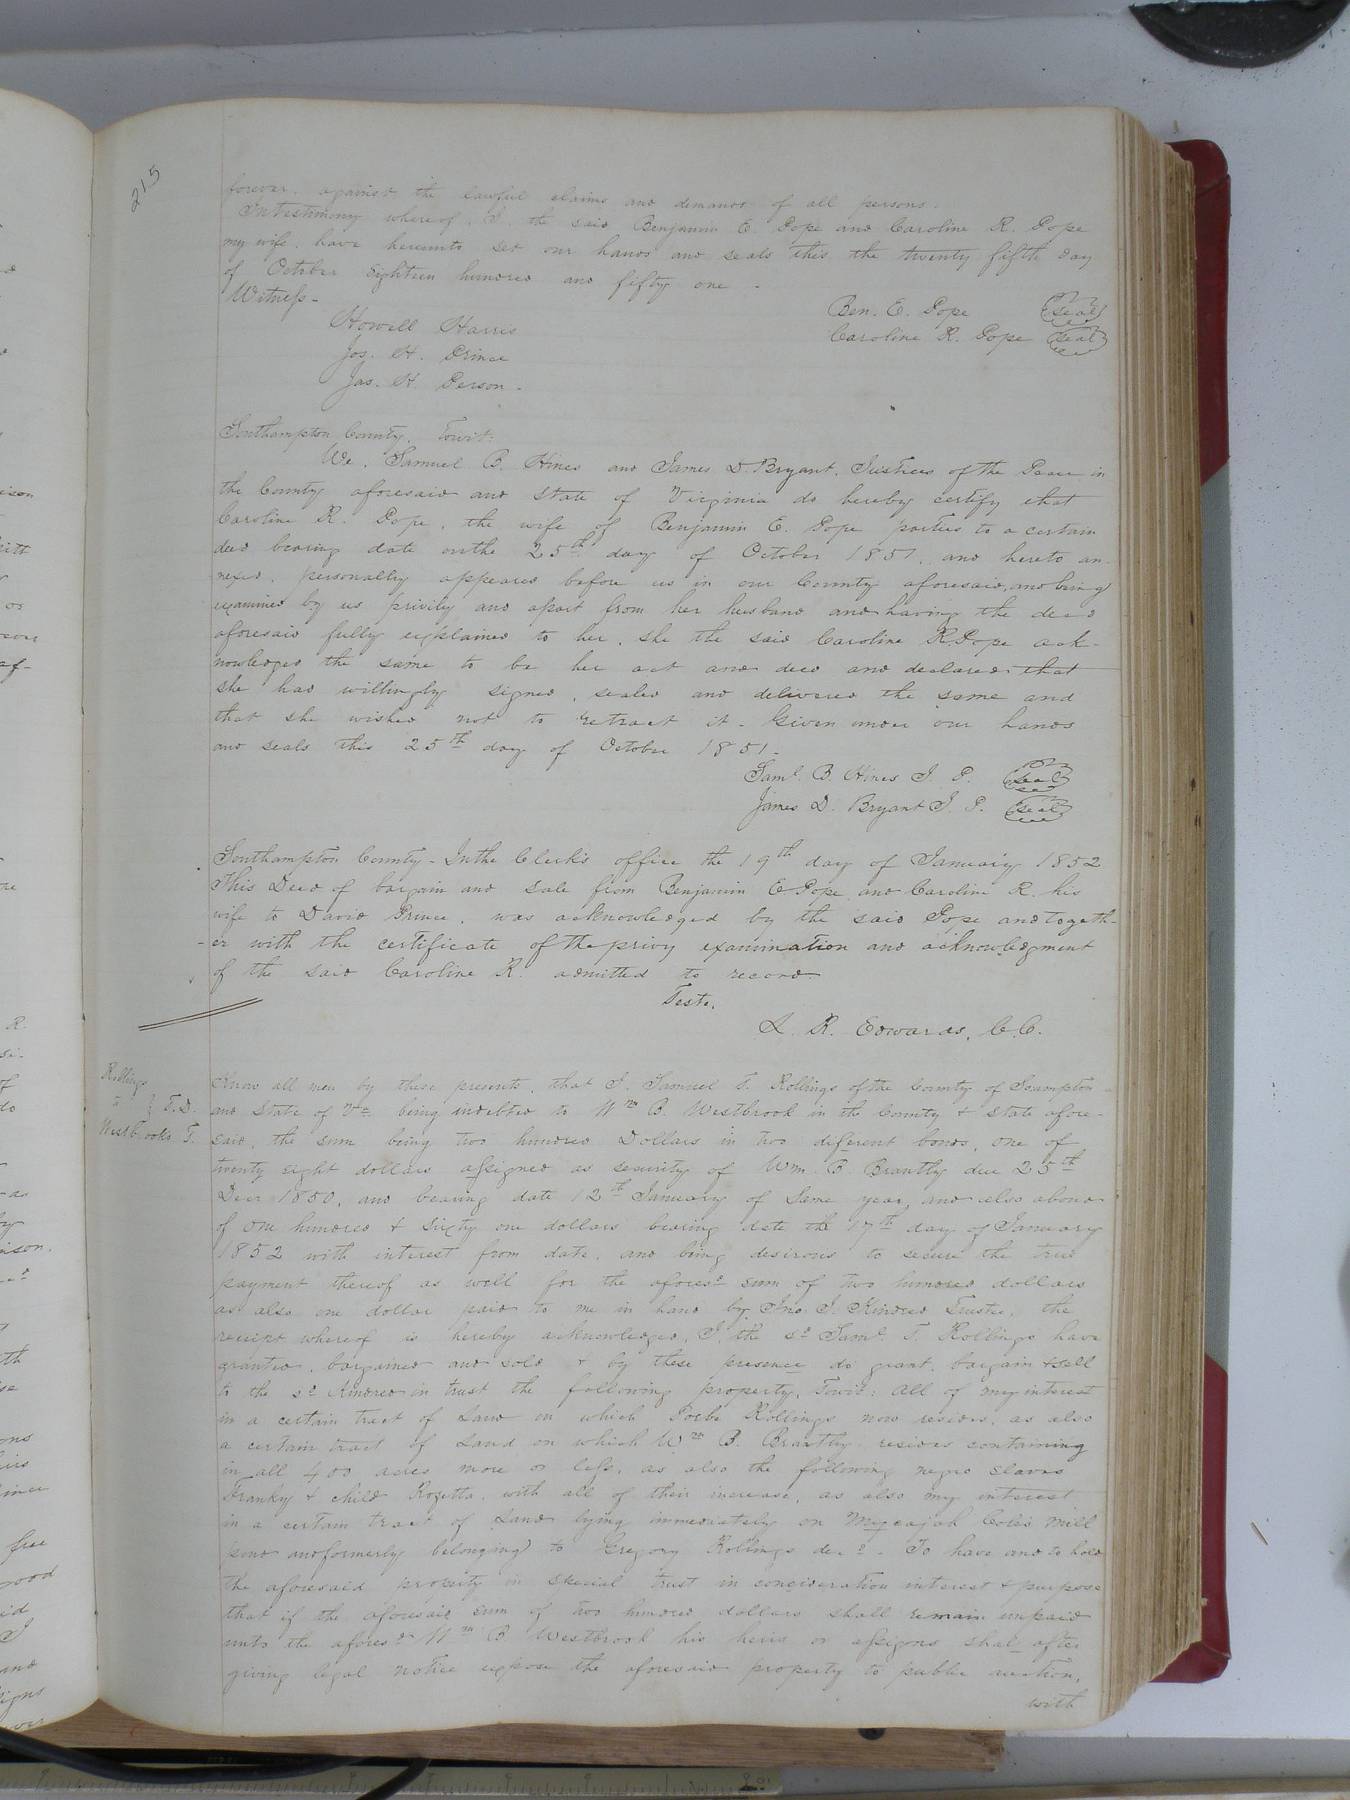 215
forever. against the lawful claims and demands of all persons.
In testimony whereof. I. the said Benjamin E. Pope and Caroline R. Pope
my wife. have hereunto set our hands and seals this the twenty fifth day
of October Eighteen hundred and fifty one -
Witness -
Ben. E. Pope seal
Howell Harris
Caroline R. Pope seal
Jos. H. Prince
Jas. H. Person -
Southampton County. Towit:
We. Samuel B. Hines and James D. Bryant. Justices of the Peace in
the County aforesaid and State of Virginia do hereby certify that
Caroline R. Pope, the wife of Benjamin E. Pope parties to a certain
deed bearing date on the 25th day of October 1851. and hereto an
nexed. personally appeared before us in our County aforesaid, and being
examined by us privily and apart from her husband and having the deed
aforesaid fully explained to her, she the said Caroline R. Pope ack-
nowledged the same to be her act and deed and declared that
she had willingly signed, sealed and delivered the same and
that she wished not to retract it - Given under our hands
and seals this 25th day of October 1851 -
Saml. B. Hines J. P. seal
James D. Bryant J. P. seal
Southampton County - In the Clerk's office the 19th day of January 1852
This Deed of bargain and sale from Benjamin E. Pope and Caroline R. his
wife to David Prince. was acknowledged by the said Pope and togeth-
-er with the certificate of the privy examination and acknowledgment
of the said Caroline R. admitted to record
Teste.
L. R. Edwards, C.C.
Rollings
to } T.D.
Westbrooks T.
Know all men by these presents, that I. Samuel T. Rollings of the County of Scampton
and State of Va. being indebted to Wm B. Westbrook in the County & State afore-
said, the sum being two hundred Dollars in two diferent bonds, one of
twenty eight dollars assigned as security of Wm. B. Brantly due 25th
Decr 1850, and bearing date 12th January of Same year, and also a bond
of one hundred & Sixty one dollars bearing date the 17th day of January
1852 with interest from date. and being desirous to secure the true
payment thereof as well for the aforesd sum of two hundred dollars
as also one dollar paid to me in hand by Jno. J. Kindred Trustee, the
receipt whereof is hereby acknowledged, I, the sd Saml. T. Rollings have
granted, bargained and sold & by these presence do grant. bargain & sell
to the sd Kindred in trust the following property, Towit: All of my interest
in a certain tract of Land on which Phebe Rollings now resides, as also
a certain tract of Land on which Wm B. Brantly resides containing
in all 400 acres more or less. as also the following negro slaves
Franky & child Rozetta. with all of their increase, as also my interest
in a certain tract of Land lying immediately on Mycajah Coles Mill
pond and formerly belonging to Gregory Rollings decd - To have and to hold
the aforesaid property in special trust in concideration interest & purpose
that if the aforesaid sum of two hundred dollars shall remain unpaid
unto the aforesd Wm B Westbrook his heirs or assigns shal after
giving legal notice expose the aforesaid property to public auction,
with